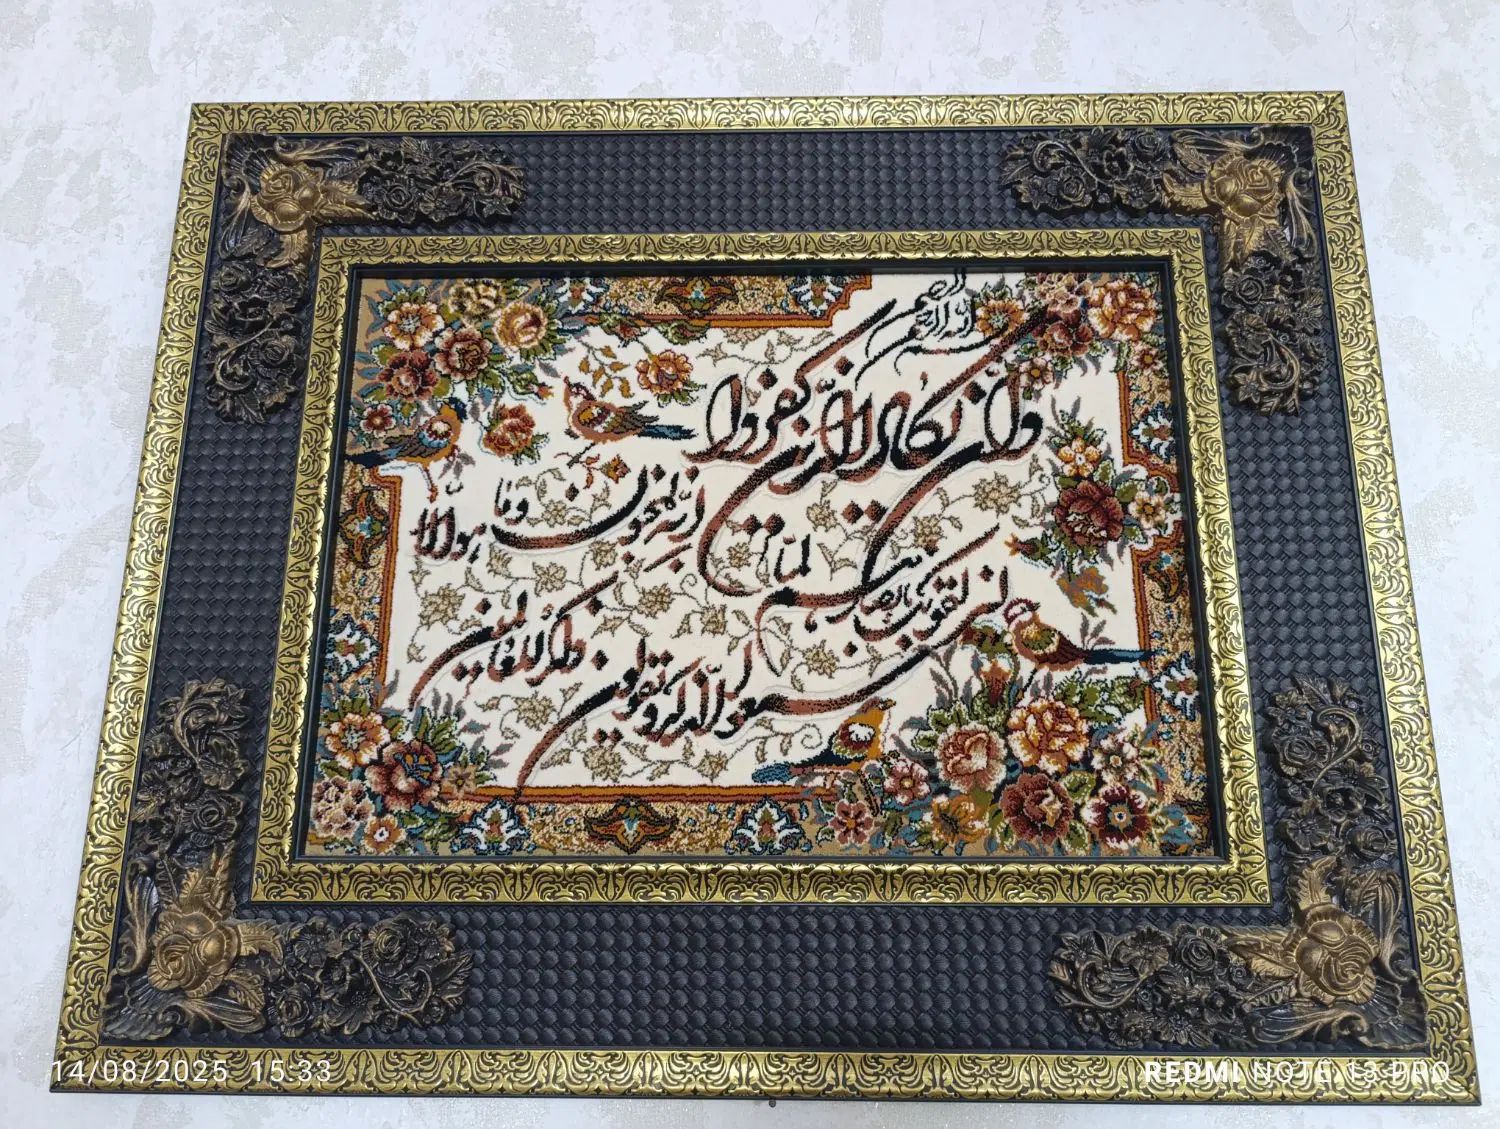 بسم الله الرحمن الرحیم
وان یکاد الذین کفروا
لیزلقونک بابصارهم لما
سمعوا الذکر و یقولون
انه لمجنون و ما هو الا
ذکر للعالمین
14/08/2025 15:33
REDMI NOTE 13 PRO